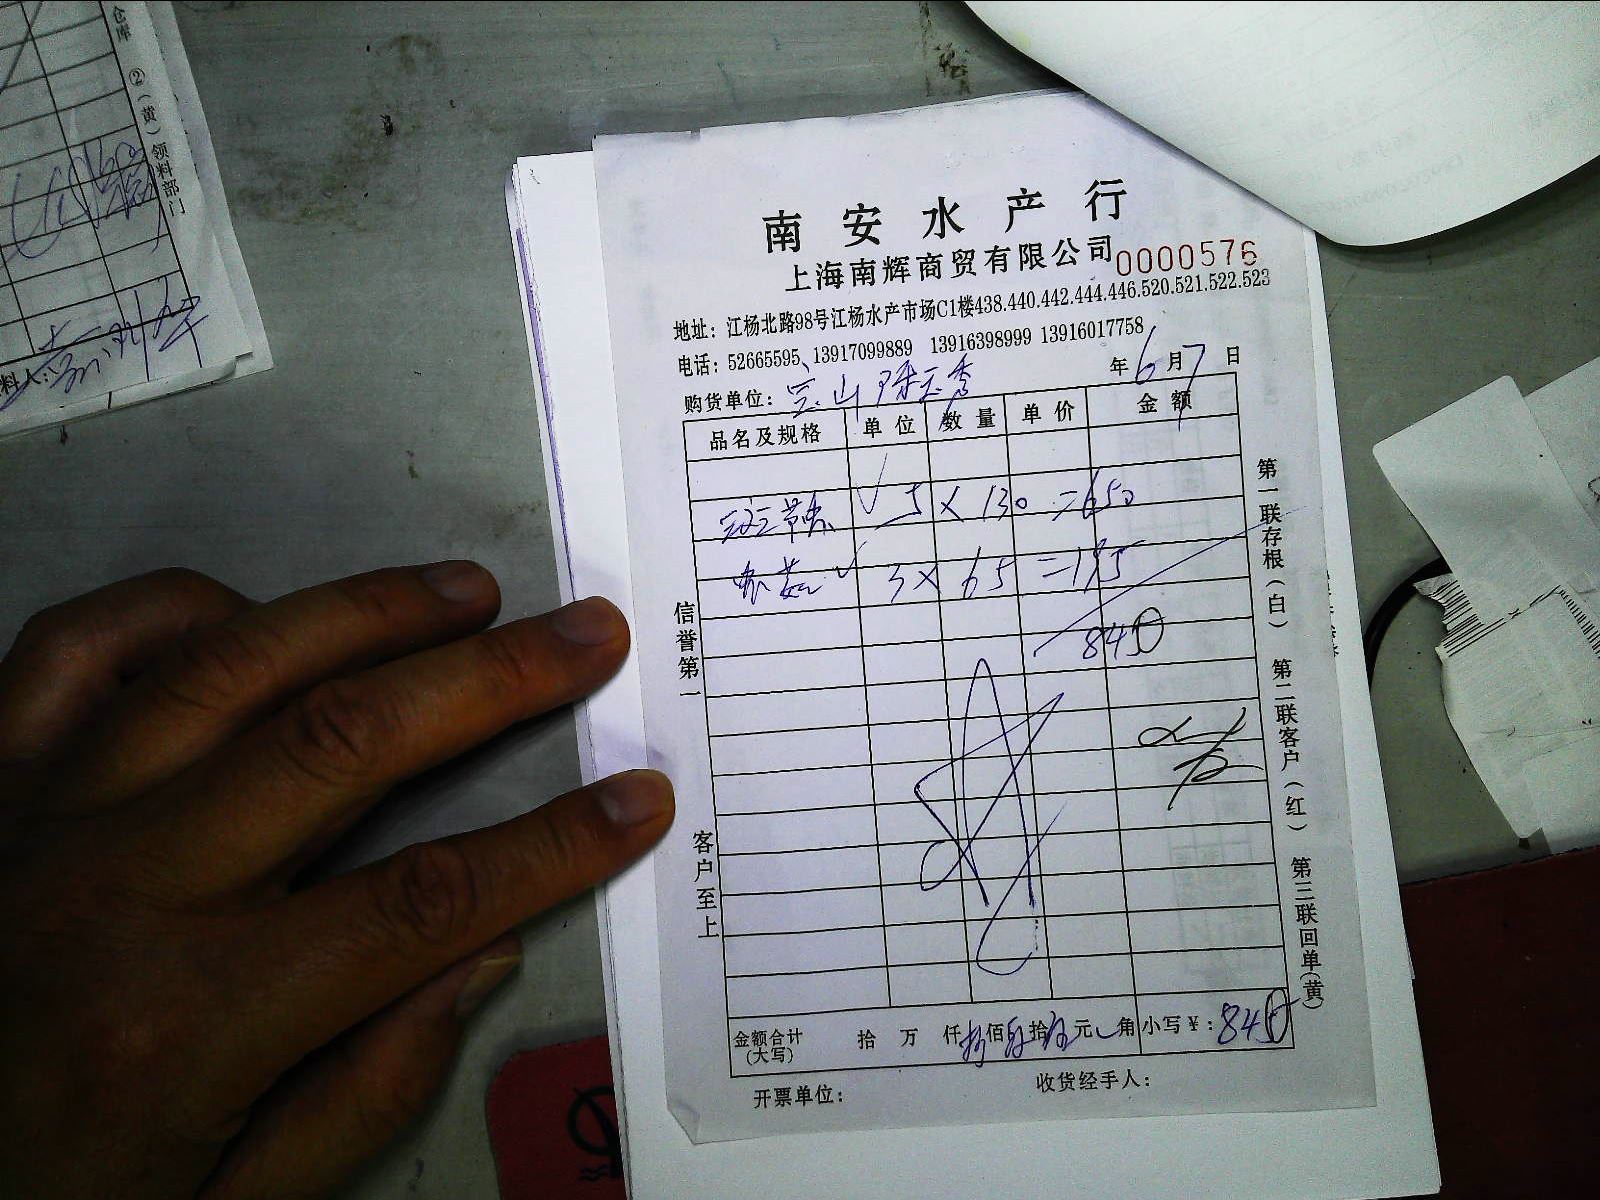 仓库 ②(黄)领料部门
料人:
南安水产行
上海南辉商贸有限公司 0000576
地址：江杨北路98号江杨水产市场C1楼438.440.442.444.446.520.521.522.523
电话：52665595、13917099889 13916398999 13916017758
年6月7日
购货单位：
品名及规格 单位 数量 单价 金额
5 × 130 = 650
3 × 65 = 195
840
信誉第一
客户至上
第一联存根(白)
第二联客户(红)
第三联回单(黄)
金额合计(大写) 拾 万 仟 佰 拾 元 角 小写￥: 840
开票单位: 收货经手人: